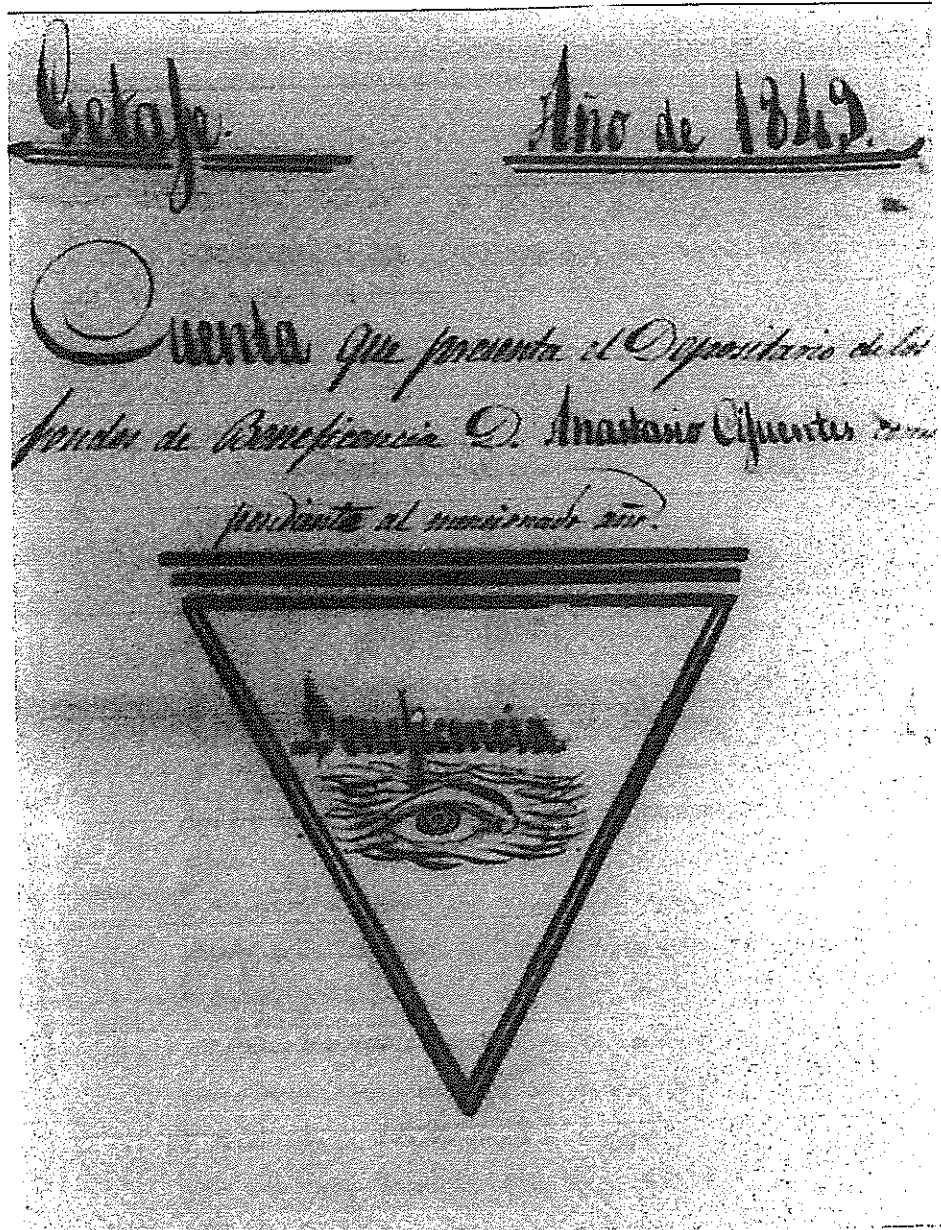 Getafe. Año de 1849.
Cuenta que presenta el Depositario de los
fondos de Beneficencia D. Anastasio Cifuentes
pendiente al mencionado año.
Beneficencia.